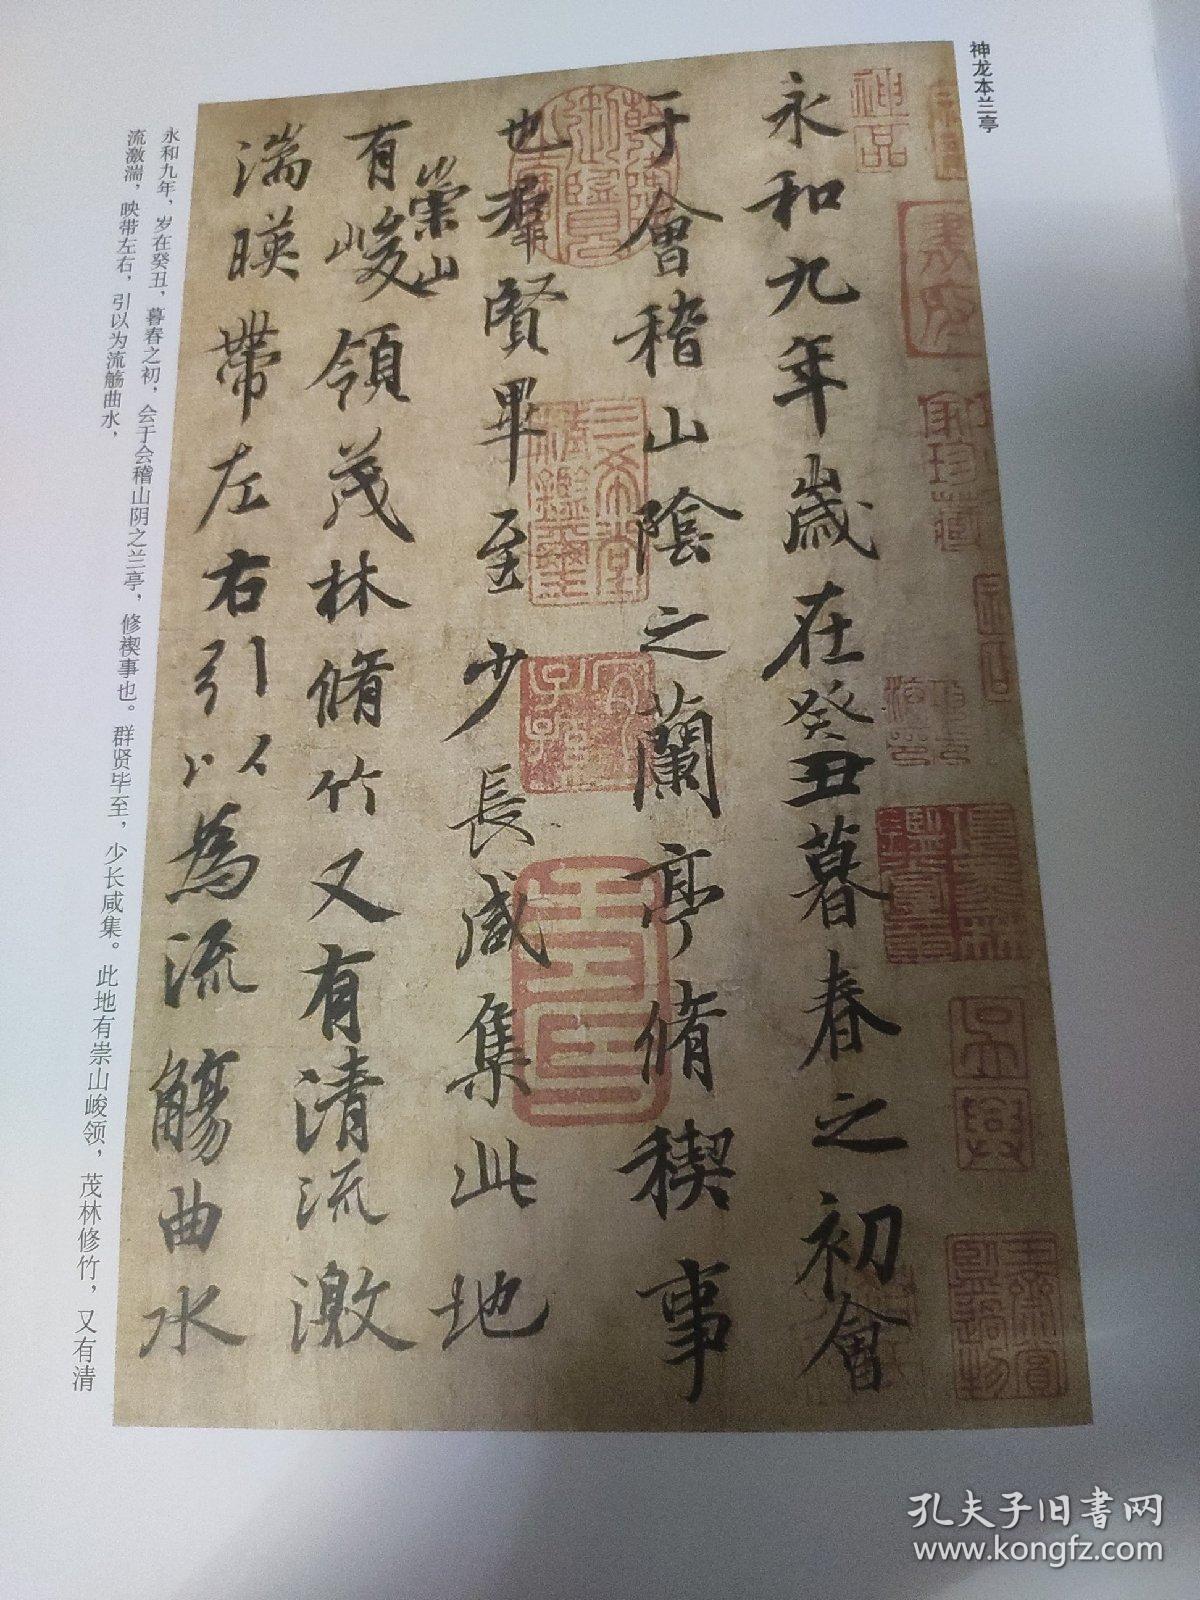 神龙本兰亭
永和九年歲在癸丑暮春之初會
于會稽山陰之蘭亭脩稧事
也羣賢畢至少長咸集此地
崇山
有峻領茂林脩竹又有清流激
湍暎帶左右引以為流觴曲水
永和九年，岁在癸丑，暮春之初，会于会稽山阴之兰亭，修禊事也。群贤毕至，少长咸集。此地有崇山峻领，茂林修竹，又有清
流激湍，映带左右，引以为流觞曲水，
神品
三希堂精鑑璽
宜子孫
孔夫子旧书网
www.kongfz.com